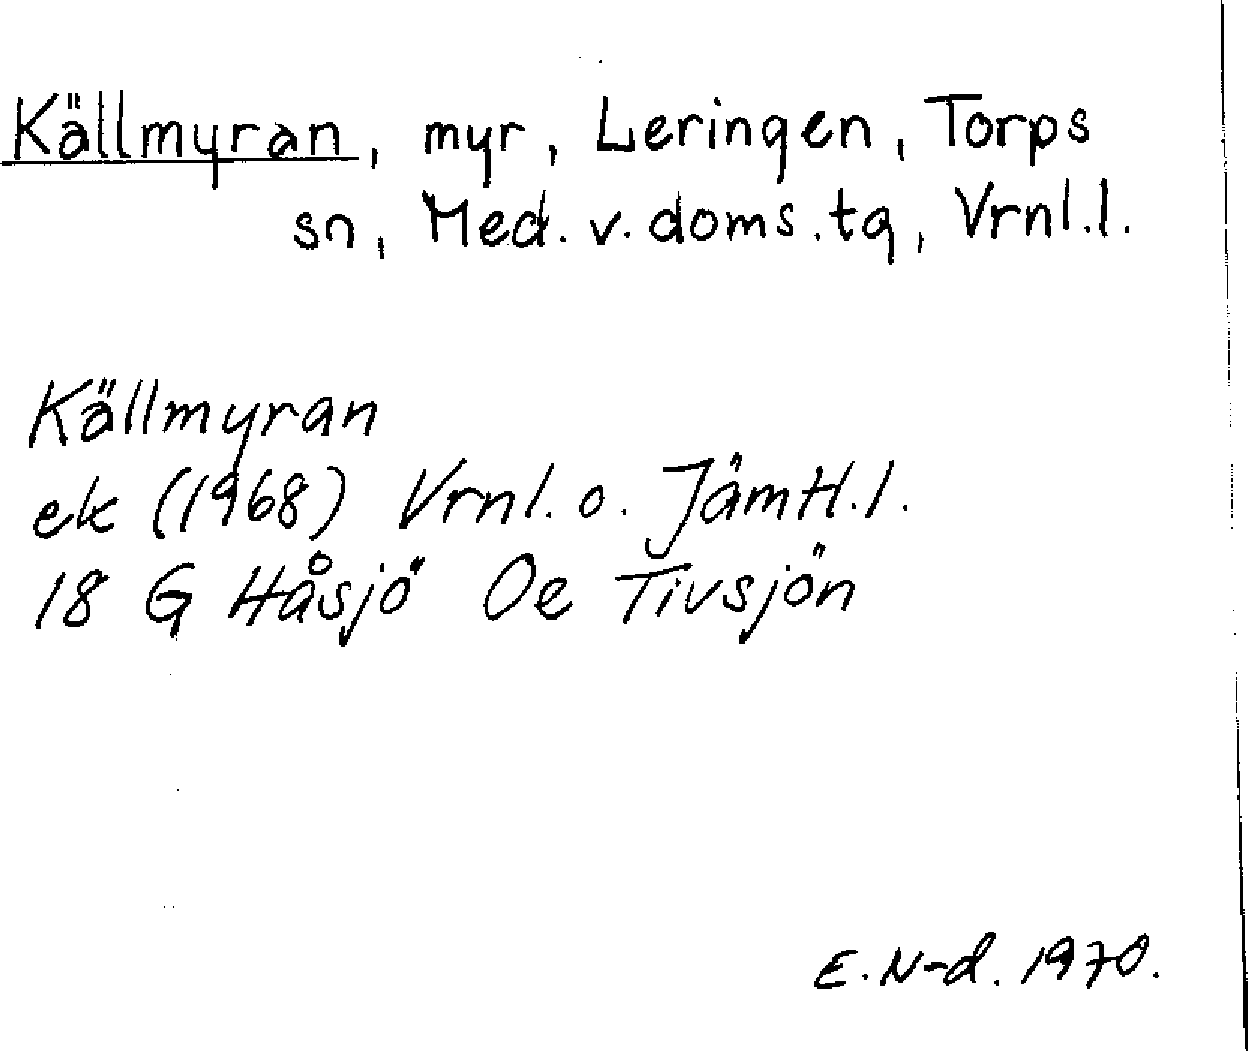 Källmyran, myr, Leringen, Torps
sn, Med. v. doms.tg, Vrnl.l.
Källmyran
ek (1968) Vrnl. o. Jämtl.l.
18 G Håsjö Oe Tivsjön
E. N-d. 1970.